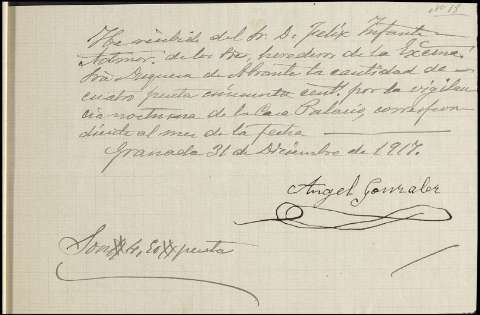 Nº 18
He recibido del Sr. D. Felix Infante
Admor. de los Exs. herederos de la Excma.
Sra. Duquesa de Abrantes la cantidad de
cuatro peseta cincuenta cent. por la vigilan
cia nocturna de la Casa Palacio, correspon
diente al mes de la fecha
Granada 31 de Diciembre de 1917.
Angel Gonzalez
Son 4,50 peseta